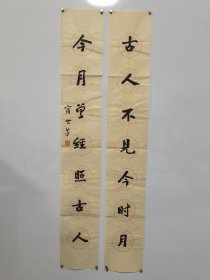 古人不見今时月
今月曾經照古人